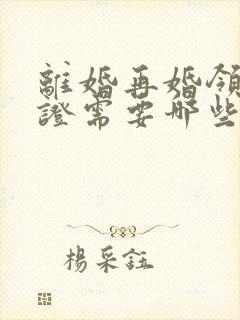 離婚再婚領
證需要哪些
楊采鈺